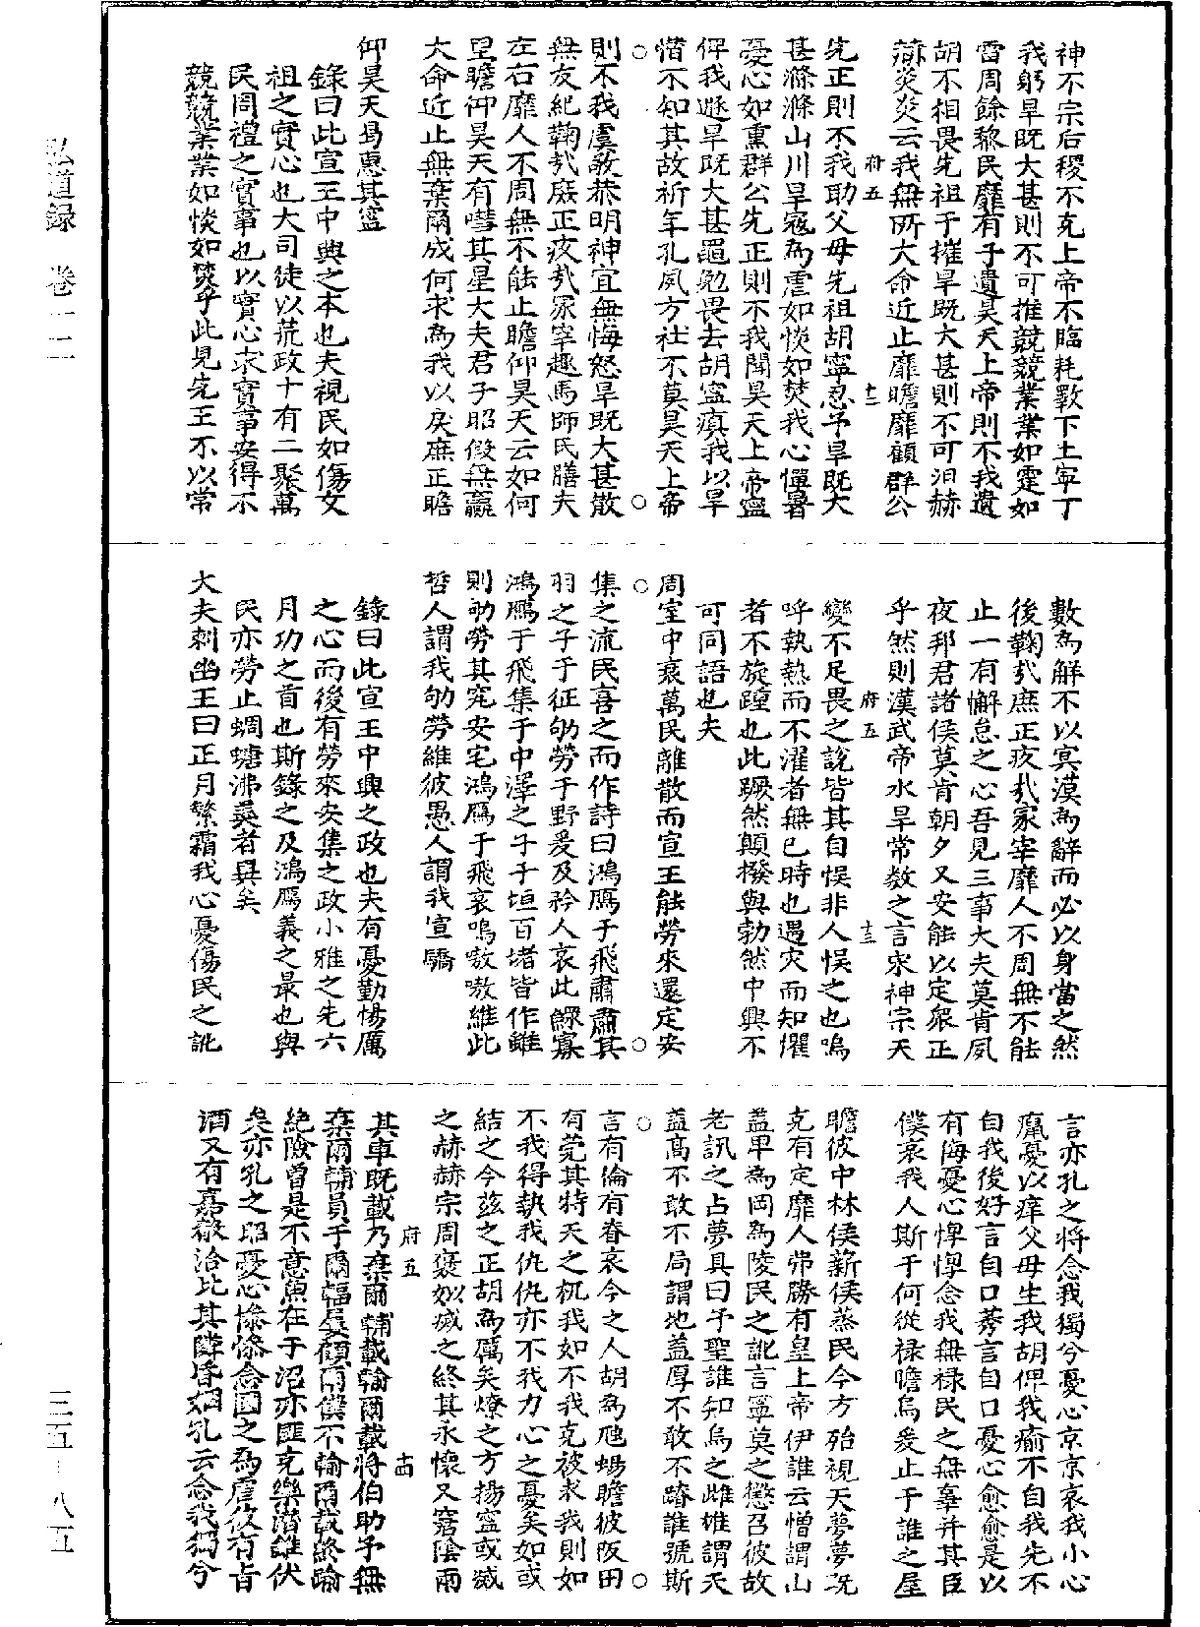 神不宗后稷不克上帝不臨耗斁下土寧丁
我躬旱既大甚則不可推兢兢業業如霆如
雷周餘黎民靡有孑遺昊天上帝則不我遺
胡不相畏先祖于摧旱既大甚則不可沮赫
赫炎炎云我無所大命近止靡瞻靡顧群公
府五 十二
先正則不我助父母先祖胡寧忍予旱既大
甚滌滌山川旱寇為虐如惔如焚我心憚暑
憂心如熏群公先正則不我聞昊天上帝寧
俾我遯旱既大甚黽勉畏去胡寧瘨我以旱
憯不知其故祈年孔夙方社不莫昊天上帝
則不我虞敬恭明神宜無悔怒旱既大甚散
無友紀鞫哉庶正疚哉冢宰趣馬師氏膳夫
左右靡人不周無不能止瞻仰昊天云如何
里瞻仰昊天有嘒其星大夫君子昭假無贏
大命近止無棄爾成何求為我以戾庶正瞻
仰昊天曷惠其寧
錄曰此宣王中興之本也夫視民如傷文
祖之實心也大司徒以荒政十有二聚萬
民周禮之實事也以實心求實事安得不
兢兢業業如惔如焚乎此見先王不以常
數為解不以冥漠為辭而必以身當之然
後鞫哉庶正疚哉冢宰靡人不周無不能
止一有懈怠之心吾見三事大夫莫肯夙
夜邦君諸侯莫肯朝夕又安能以定眾正
乎然則漢武帝水旱常数之言宋神宗天
府五 十三
變不足畏之說皆其自悞非人悞之也嗚
呼執熱而不濯者無已時也遇灾而知懼
者不旋踵也此蹶然顛撥與勃然中興不
可同語也夫
周室中衰萬民離散而宣王能勞來還定安
集之流民喜之而作詩曰鴻鴈于飛肅肅其
羽之子于征劬勞于野爰及矜人哀此鰥寡
鴻鴈于飛集于中澤之子于垣百堵皆作雖
則劬勞其究安宅鴻鴈于飛哀鳴嗷嗷維此
哲人謂我劬勞維彼愚人謂我宣驕
錄曰此宣王中興之政也夫有憂勤惕厲
之心而後有勞來安集之政小雅之先六
月功之首也斯錄之及鴻鴈義之最也與
民亦勞止蜩螗沸羹者異矣
大夫刺幽王曰正月繁霜我心憂傷民之訛
言亦孔之將念我獨兮憂心京京哀我小心
癙憂以痒父母生我胡俾我瘉不自我先不
自我後好言自口莠言自口憂心愈愈是以
有侮憂心惸惸念我無祿民之無辜并其臣
僕哀我人斯于何從祿瞻烏爰止于誰之屋
瞻彼中林侯薪侯蒸民今方殆視天夢夢既
克有定靡人弗勝有皇上帝伊誰云憎謂山
蓋卑為岡為陵民之訛言寧莫之懲召彼故
老訊之占夢具曰予聖誰知烏之雌雄謂天
蓋高不敢不局謂地蓋厚不敢不蹐誰號斯
言有倫有脊哀今之人胡為虺蜴瞻彼阪田
有菀其特天之杌我如不我克彼求我則如
不我得執我仇仇亦不我力心之憂矣如或
結之今茲之正胡為厲矣燎之方揚寧或滅
之赫赫宗周褒姒烕之終其永懷又窘陰雨
府五 十四
其車既載乃棄爾輔載輸爾載將伯助予無
棄爾輔員于爾輻屢顧爾僕不輸爾載終踰
絕險曾是不意魚在于沼亦匪克樂潛雖伏
矣亦孔之昭憂心慘慘念國之為虐彼有旨
酒又有嘉殽洽比其隣昏姻孔云念我獨兮
弘道録 卷一二
三五-八五